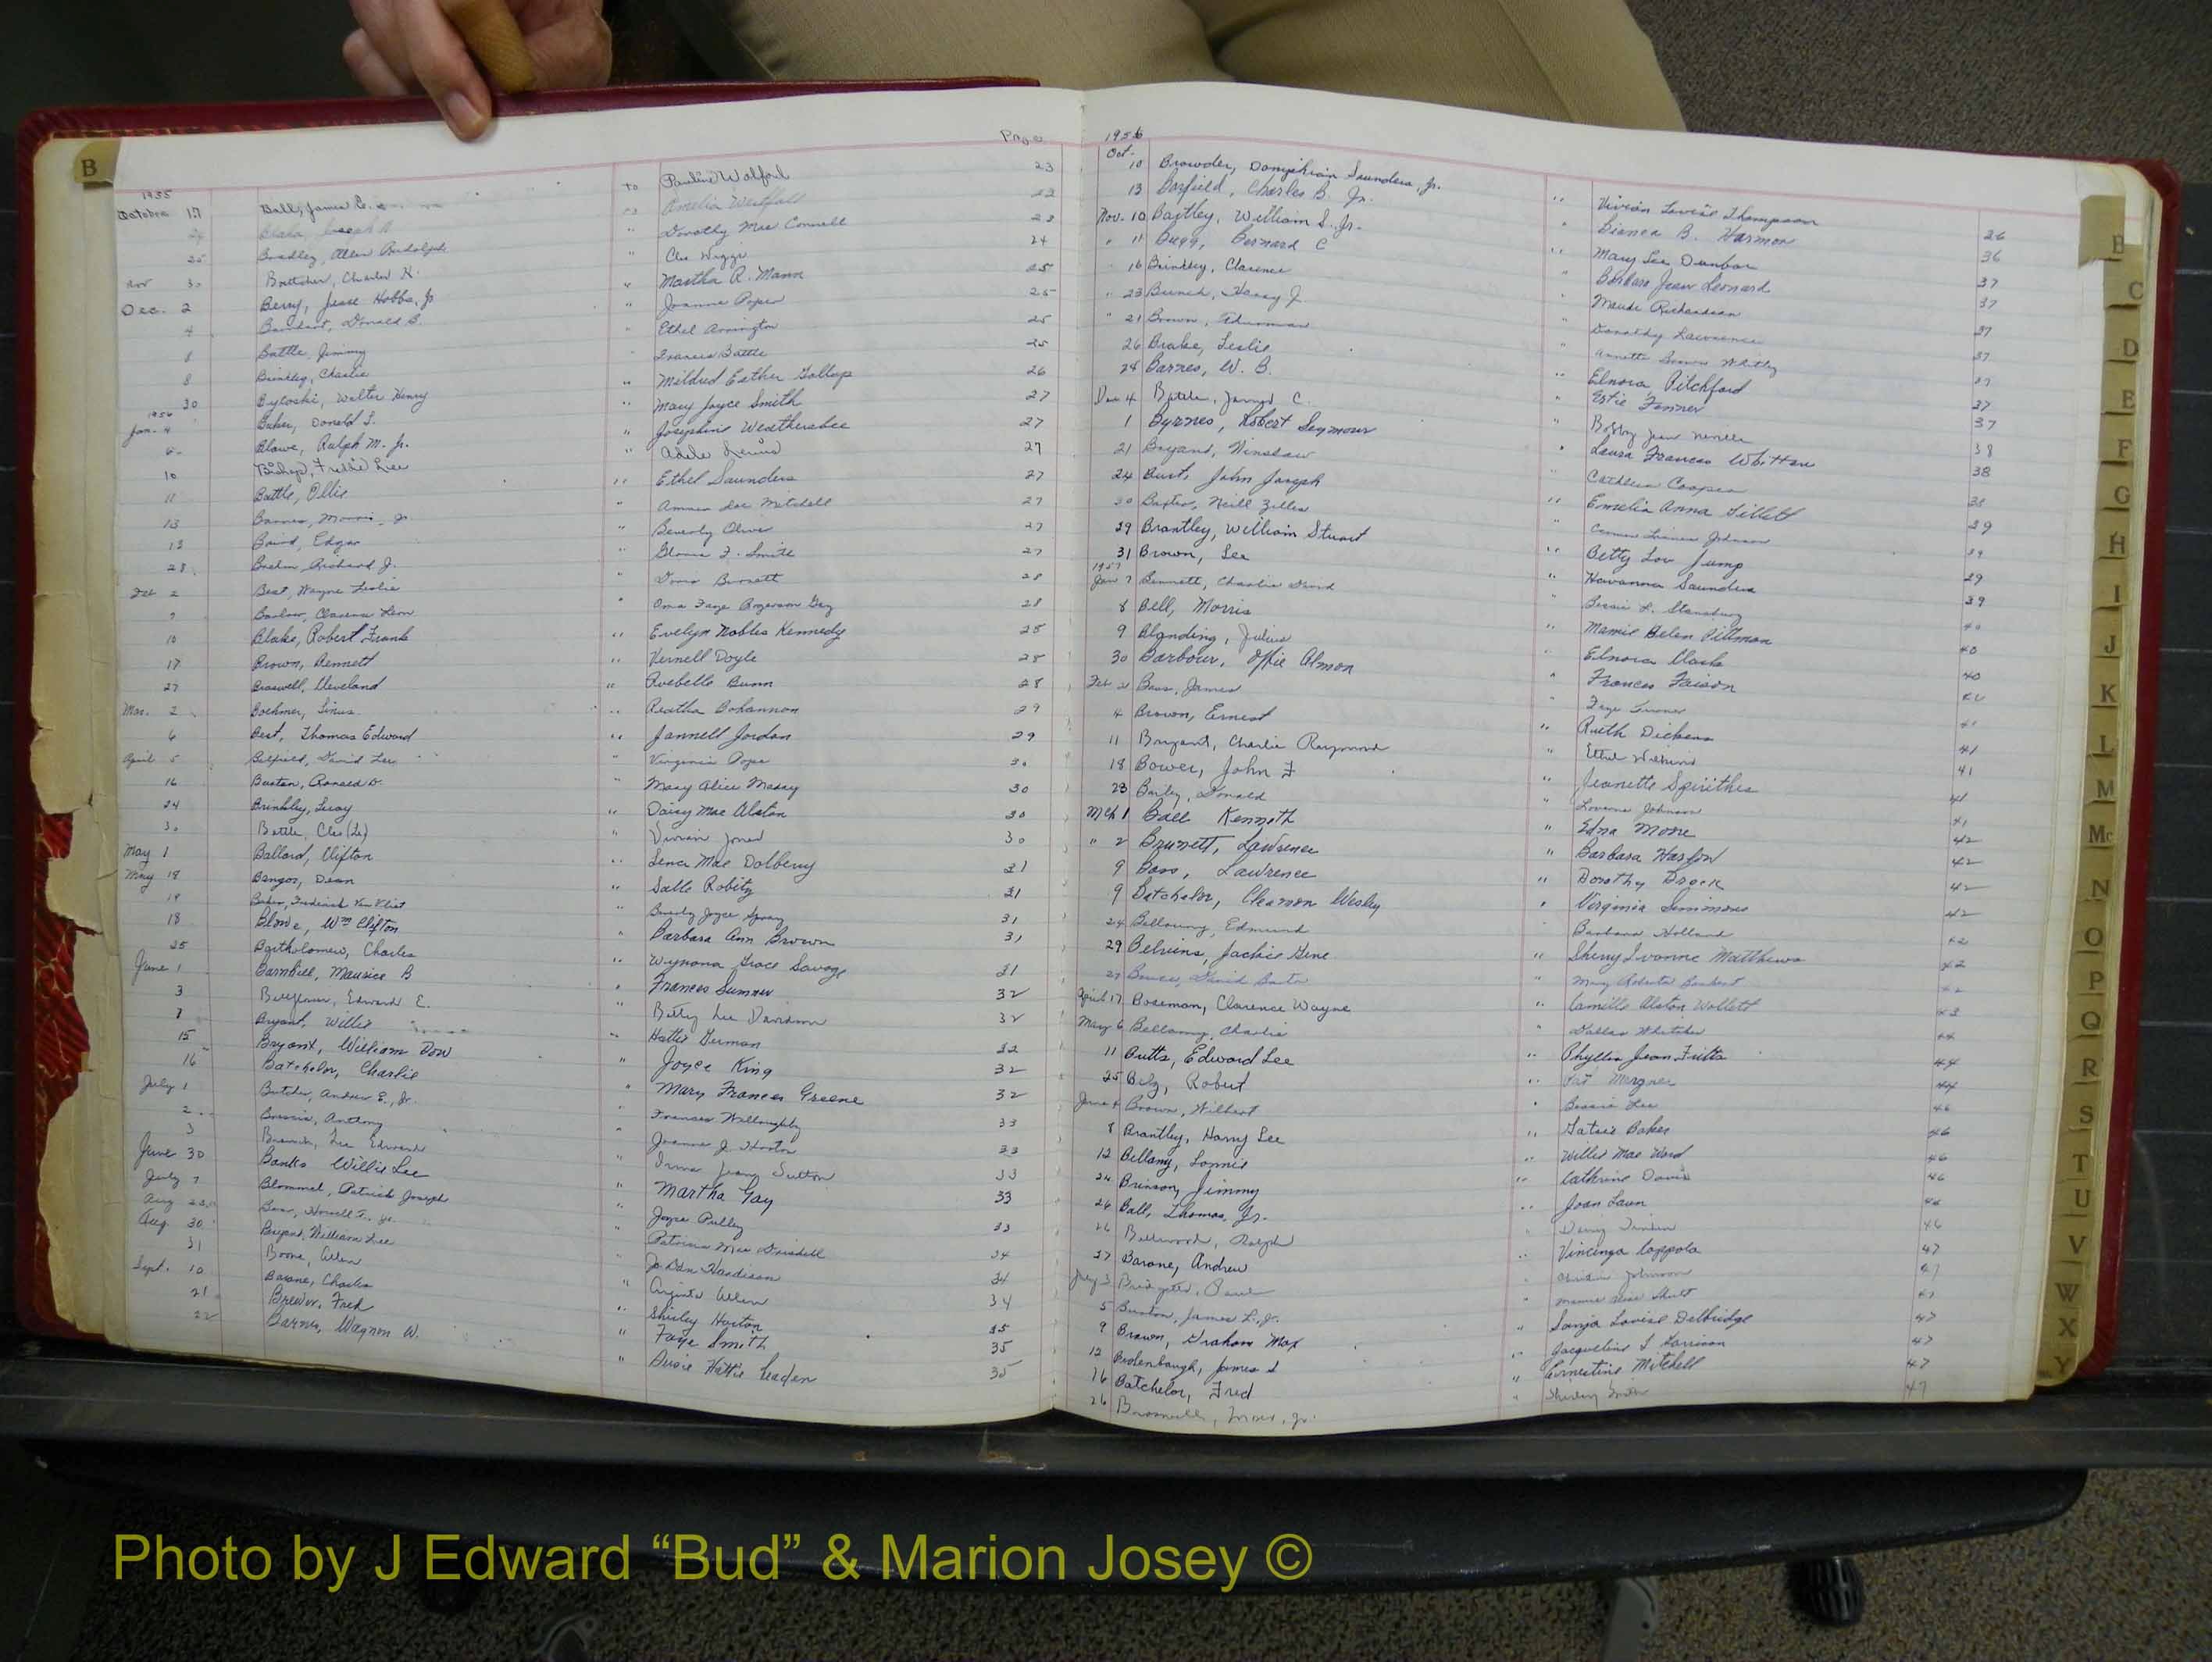 B
Page
1955
October 17 Ball, James E. to Pauline Walford 23
24 Blaha, Joseph Amelia Westfall
25 Bradley, Allen Rudolph " Dorothy Mae Connell 23
Nov 30 Boettcher, Charles H. " Cleo Wiggs 24
Dec. 2 Berry, Jesse Hobbs, Jr " Martha R. Mann 25
4 Donald B. " Joanne Pope 25
8 Battle, Jimmy " Ethel Arrington 25
8 Brinkley, Charlie " Frances Battle 25
30 Byloski, Walter Henry " Mildred Esther Gallup 26
1956
Jan. 4 Baker, Donald T. " Mary Joyce Smith 27
6 Blowe, Ralph M. Jr. " Josephine Weathersbee 27
10 Bishop, Freddie Lee " Adele Lewis 27
11 Battle, Ollie " Ethel Saunders 27
13 Barnes, Morris, Jr. " Annie Lee Mitchell 27
13 Baird, Edgar " Beverly Oliver 27
28 Richard J. " Gloria F. Smith 27
Feb 2 Best, Wayne Leslie " Doris Barrett 28
9 Barlow, Clarence Leon " Oma Faye Rogerson Gay 28
10 Blake, Robert Frank " Evelyn Nobles Kennedy 28
17 Brown, Bennett " Vernell Doyle 28
27 Braswell, Cleveland " Roebelle Bunn 28
Mar. 2 Boehmer, Linus " Reatha Bohannon 29
6 Best, Thomas Edward " Jannell Jordan 29
April 5 Belfield, David Lee " Virginia Pope 30
16 Buxton, Ronald D. " Mary Alice Massey 30
24 Brinkley, Leroy " Daisy Mae Alston 30
30 Battle, Cleo (Le) " Vivian Jones 30
May 1 Ballard, Clifton " Lena Mae Dolberry 31
May 18 Bangos, Dean " Salle Robity 31
19 Baker, Frederick Van Vliet " Beverly Joyce Spivey 31
18 Blowe, Wm Clifton " Barbara Ann Brown 31
25 Bartholomew, Charles " Wynona Grace Savage 31
June 1 Barnhill, Maurice B " Frances Sumner 32
3 Bellflower, Edward E. " Betty Lee Davidson 32
7 Bryant, Willie " Hattie German 32
15 Bryant, William Dow " Joyce King 32
16 Batchelor, Charlie " Mary Frances Greene 32
July 1 Butcher, Andrew E., Jr. " Frances Willoughby 33
2 Anthony " Joanne J. Horton 33
3 Lee Edward " Irma Jeany Sutton 33
June 30 Banks Willie Lee " Martha Gay 33
July 7 Blommel, Patrick Joseph " Joyce Pulley 33
Aug 23 Howell T. Jr. " Patricia Mae Drisdell 34
Aug. 30 Bryant, William Lee " Jo Ann Hardison 34
31 Boone, Allen " Allen 34
Sept. 10 Barone, Charles " Shirley Horton 35
21 Brewer, Fred " Faye Smith 35
22 Barnes, Wagnon W. " Susie Hattie Leaden 35
1956
Oct. 10 Browder, Saunders Jr. " Vivian Louise Thompson 36
13 Barfield, Charles B. Jr. " Bianca B. Harmon 36
Nov. 10 Bartley, William S. Jr. " Mary Lee Dunbar 37
" 11 Bugg, Bernard C " Barbara Jean Leonard 37
16 Brinkley, Clarence " Maude Richardson 37
" 23 Bunch, Henry J. " Dorothy Lawrence 37
" 21 Brown, Thurman " Annette Whitley 37
26 Brake, Leslie " Elnora Pitchford 37
24 Barnes, W. B. " Estie Fenner 37
Dec 4 Battle, James C. " Bobby Jean Neville 38
1 Byrnes, Robert Seymour " Laura Frances Whitten 38
21 Bryant, Winslow " Cathleen Cooper 38
24 Burt, John Joseph " Emelia Anna Tillett 39
30 Baxter, Neill Zeller " Johnson 39
29 Brantley, William Stuart " Betty Lou Jump 39
31 Brown, Lee " Havanna Saunders 39
1957
Jan 7 Bennett, Charlie David " Bessie L. Stansbury 40
8 Bell, Morris " Mamie Helen Pittman 40
9 Blanding, Julius " Elnora Clark 40
30 Barbour, Offie Almon " Frances Faison
Feb 2 Bass, James " Faye Turner 41
4 Brown, Ernest " Ruth Dickens 41
11 Bryant, Charlie Raymond " Ethel Wilkins 41
18 Bower, John F " Jeanette Spirithes 41
23 Bailey, Donald " Lovenia Johnson 41
Mch 1 Ball Kenneth " Edna Moore 42
" 2 Brunett, Lawrence " Barbara Harlow 42
9 Bass, Lawrence " Dorothy Brock 42
9 Batchelor, Cleamon Wesley " Virginia Simmons 42
24 Bellamy, Edmund " Barbara Holland 42
29 Belvins, Jackie Gene " Sherry Ivonne Matthews 42
27 David " Mary Roberta
April 17 Boseman, Clarence Wayne " Camille Alston Wollett 43
May 6 Bellamy, Charlie " Dallas Whitaker 44
11 Butts, Edward Lee " Phyllis Jean Fritts 44
25 Belz, Robert " Pat 44
June 4 Brown, Wilbert " Bessie Lee 46
8 Brantley, Harry Lee " Gatsie Baker 46
12 Bellamy, Lonnie " Willie Mae Ward 46
24 Brinson, Jimmy " Cathrine Davis 46
26 Ball, Thomas, Jr. " Joan Lawn 46
26 Ralph " 46
27 Barone, Andrew " Vincenza Coppola 47
July 3 Paul " Johnson 47
5 Burton, James L. Jr. " 47
9 Brown, Graham Max " Sonja Louise Delbridge 47
12 Brolenbaugh, James L " Jacqueline L Harrison 47
16 Batchelor, Fred " Ernestine Mitchell 47
26 Jr. " Shirley Smith 47
B
C
D
E
F
G
H
I
J
K
L
M
Mc
N
O
P
Q
R
S
T
U
V
W
X
Y
Photo by J Edward “Bud” & Marion Josey ©